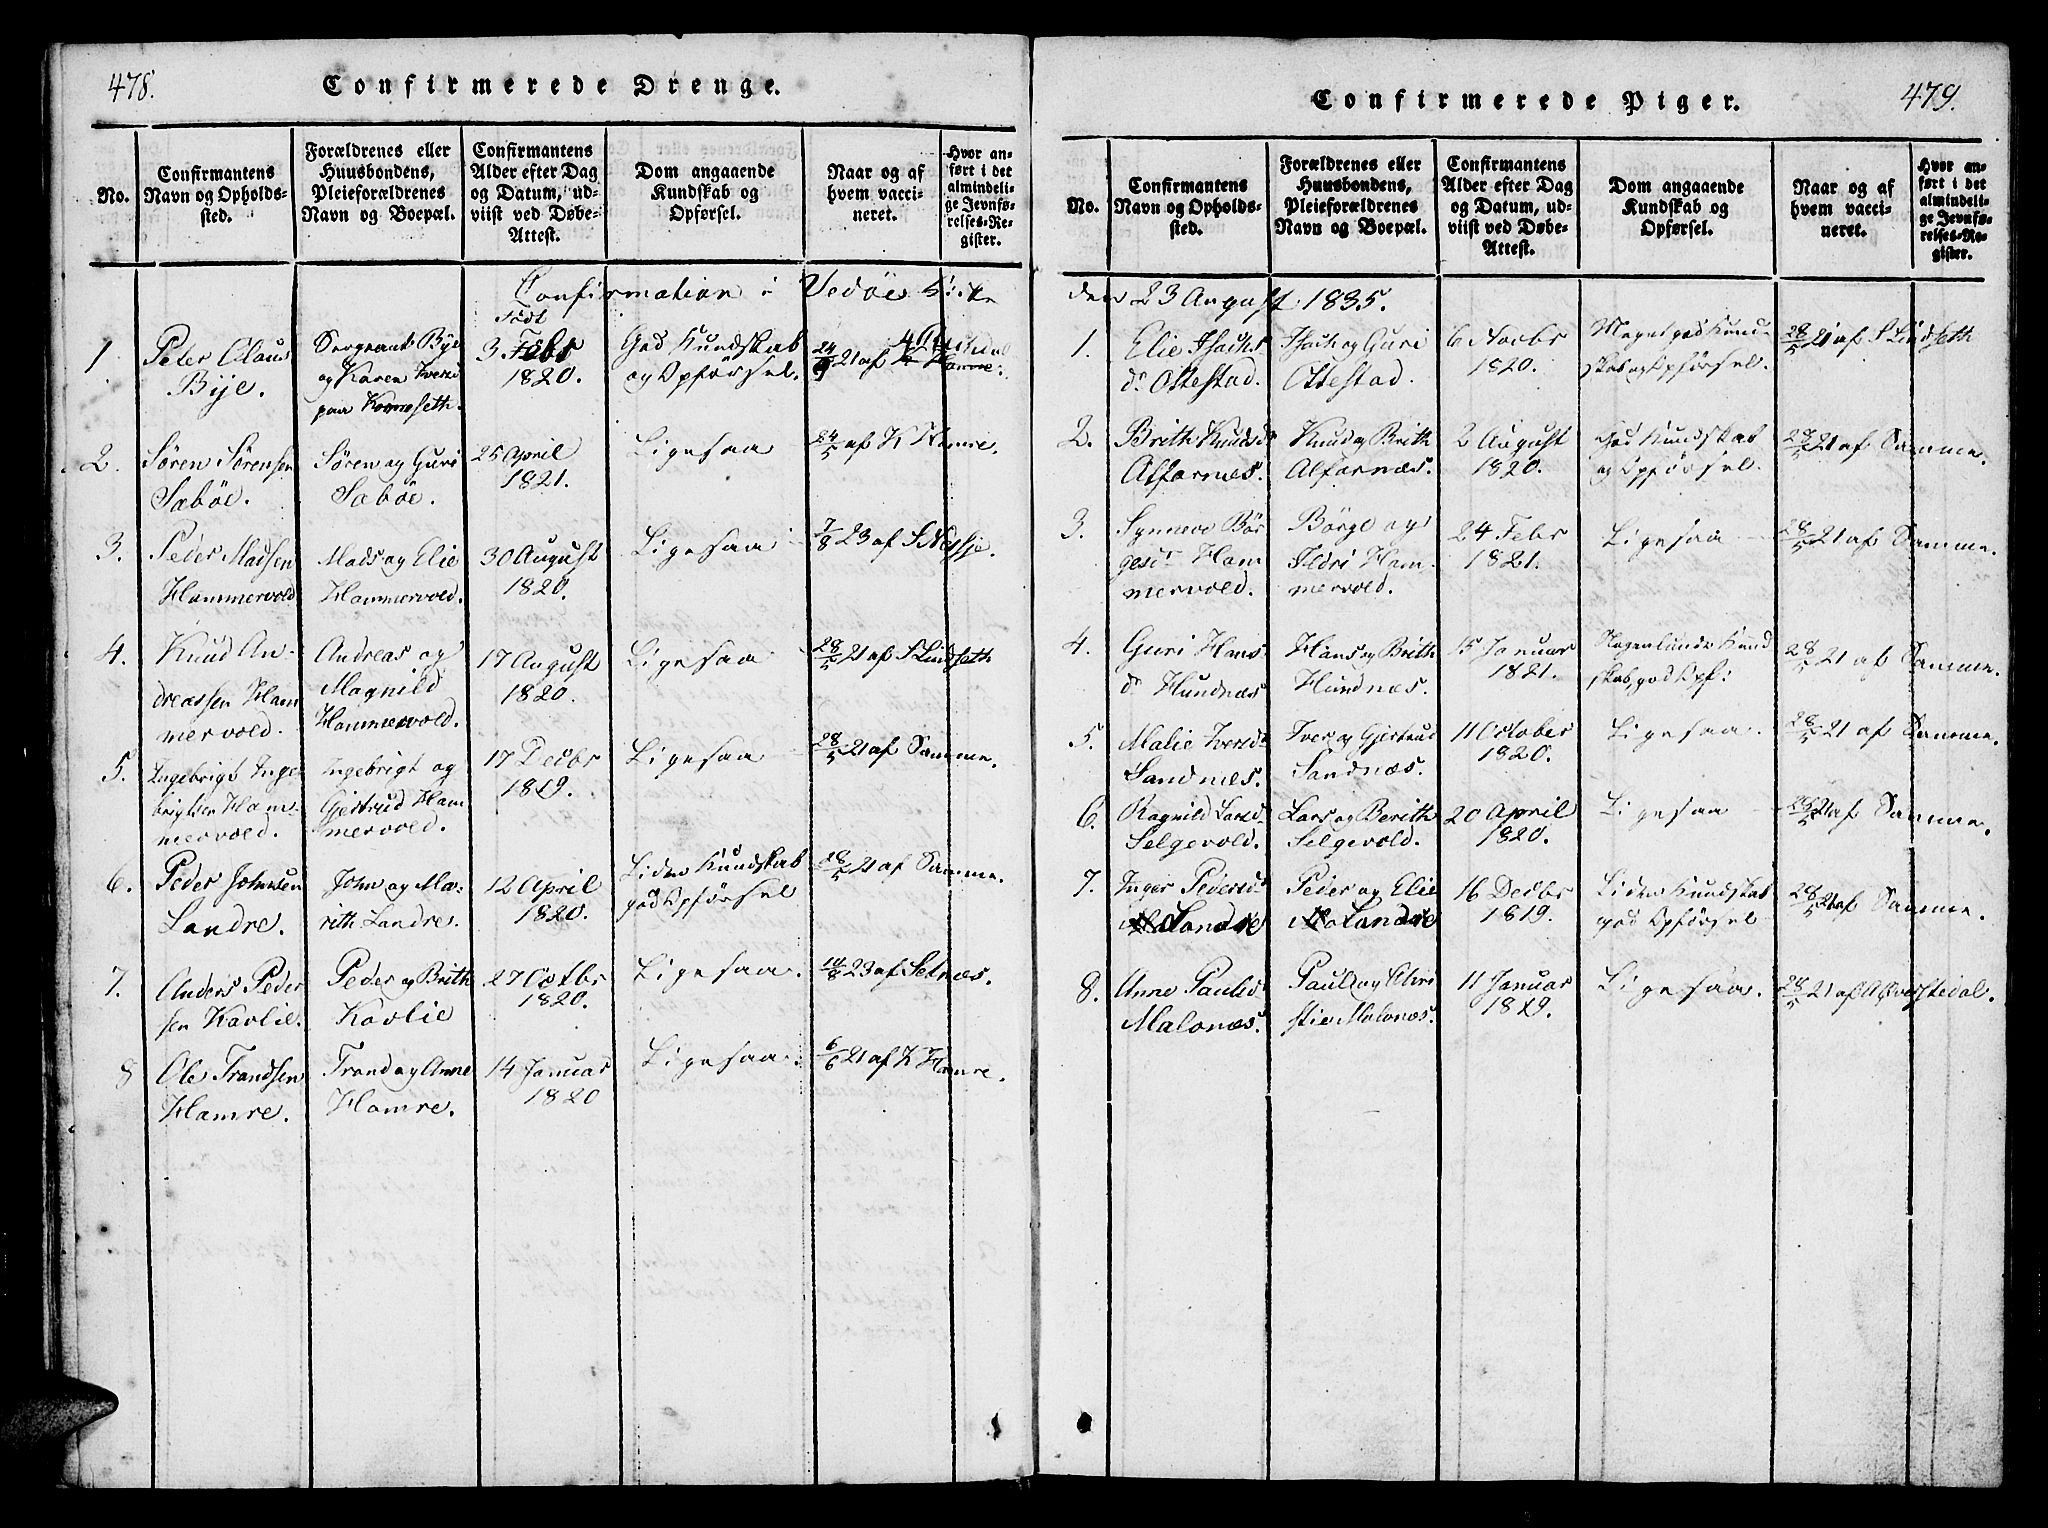 478.
Confirmerede Drenge.
No.
Confirmantens
Navn og Opholds-
sted.
Forældrenes eller
Huusbondens,
Pleieforældrenes
Navn og Boepæl.
Confirmantens
Alder efter Dag
og Datum, ud-
viist ved Døbe-
Attest.
Dom angaaende
Kundskab og
Opførsel.
Naar og af
hvem vacci-
neret.
Hvor an-
ført i det
almindeli-
ge Jevnfø-
relses-Re-
gister.
Confirmation i Vedöe Kirke
födt
1
Peter Claus
Bye.
Sergeant Bye
og Karen Iversd
paa
3 Febr
1820.
God Kundskab
og Opförsel.
21 af
2.
Sören Sörensen
Sæböe.
Sören og Guri
Sæböe.
25 April
1821.
Ligesaa
24/5 af K Hamre.
3.
Peder Madsen
Hammervold
Mads og Elie
Hammervold.
30 August
1820.
Ligesaa
7/8 23 af S Nesje.
4.
Knud An-
dreassen Ham
mervold.
Andreas og
Magnild
Hammervold.
17 August
1820.
Ligesaa
28/5 21 af S Lindseth
5.
Ingebrigt Inge
brigtsen Ham-
mervold.
Ingebrigt og
Gjertrud Ham
mervold.
17 Decbr
1819.
Ligesaa
28/5 21 af Samme.
6.
Peder Johnsen
Landre.
John og Ma-
rith Landre.
12 April
1820.
Liden Kundskab
god Opförsel
28/5 21 af Samme.
7.
Anders Peder
sen Kavlie.
Peder og Brith
Kavlie
27 Octbr
1820.
Ligesaa.
14/8 23 af Setnæs.
8
Ole Trondsen
Hamre.
Trond og Anne
Hamre.
14 Januar
1820
Ligesaa.
6/6 21 af K Hamre.
479.
Confirmerede Piger.
No.
Confirmantens
Navn og Opholds-
sted.
Forældrenes eller
Huusbondens,
Pleieforældrenes
Navn og Boepæl.
Confirmantens
Alder efter Dag
og Datum, ud-
viist ved Døbe-
Attest.
Dom angaaende
Kundskab og
Opførsel.
Naar og af
hvem vacci-
neret.
Hvor an-
ført i det
almindeli-
ge Jevnfø-
relses-Re-
gister.
den 23 August 1835.
1.
Elie Isachs
dr Ottestad.
Isach og Guri
Ottestad.
6 Novbr
1820.
Meget god Kund-
skab og Opförsel.
28/5 21 af S Lindseth
2.
Brith Knudsdr
Alfarnæs.
Knud og Brith
Alfarnæs.
2 August
1820.
God Kundskab
og Opförsel.
28/5 21 af Samme.
3.
Synneve Bör
gesdr Ham
mervold.
Börge og
Ildri Ham-
mervold.
24 Febr
1821.
Ligesaa
28/5 21 af Samme.
4.
Guri Hans
dr Hundnæs.
Hans og Brith
Hundnæs.
15 Januar
1821.
Nogenlunde Kund
skab, god Opf:
28/5 21 af Samme.
5.
Malie Iversdr
Sandnæs.
Iver og Gjertrud
Sandnæs.
11 October
1820.
Ligesaa.
28/5 21 af Samme.
6.
Ragnild Larsd
Selgevold.
Lars og Berith
Selgevold.
20 April
1820.
Ligesaa
28/5 21 af Samme.
7.
Inger Pedersdr
Landre
Peder og Elie
Landre
16 Decbr
1819.
Liden Kundskab
god Opförsel
28/5 21 af Samme.
8.
Anne Paulsd
Malonæs.
Paul og Chri
stie Malonæs.
11 Januar
1819.
Ligesaa.
28/5 21 af A